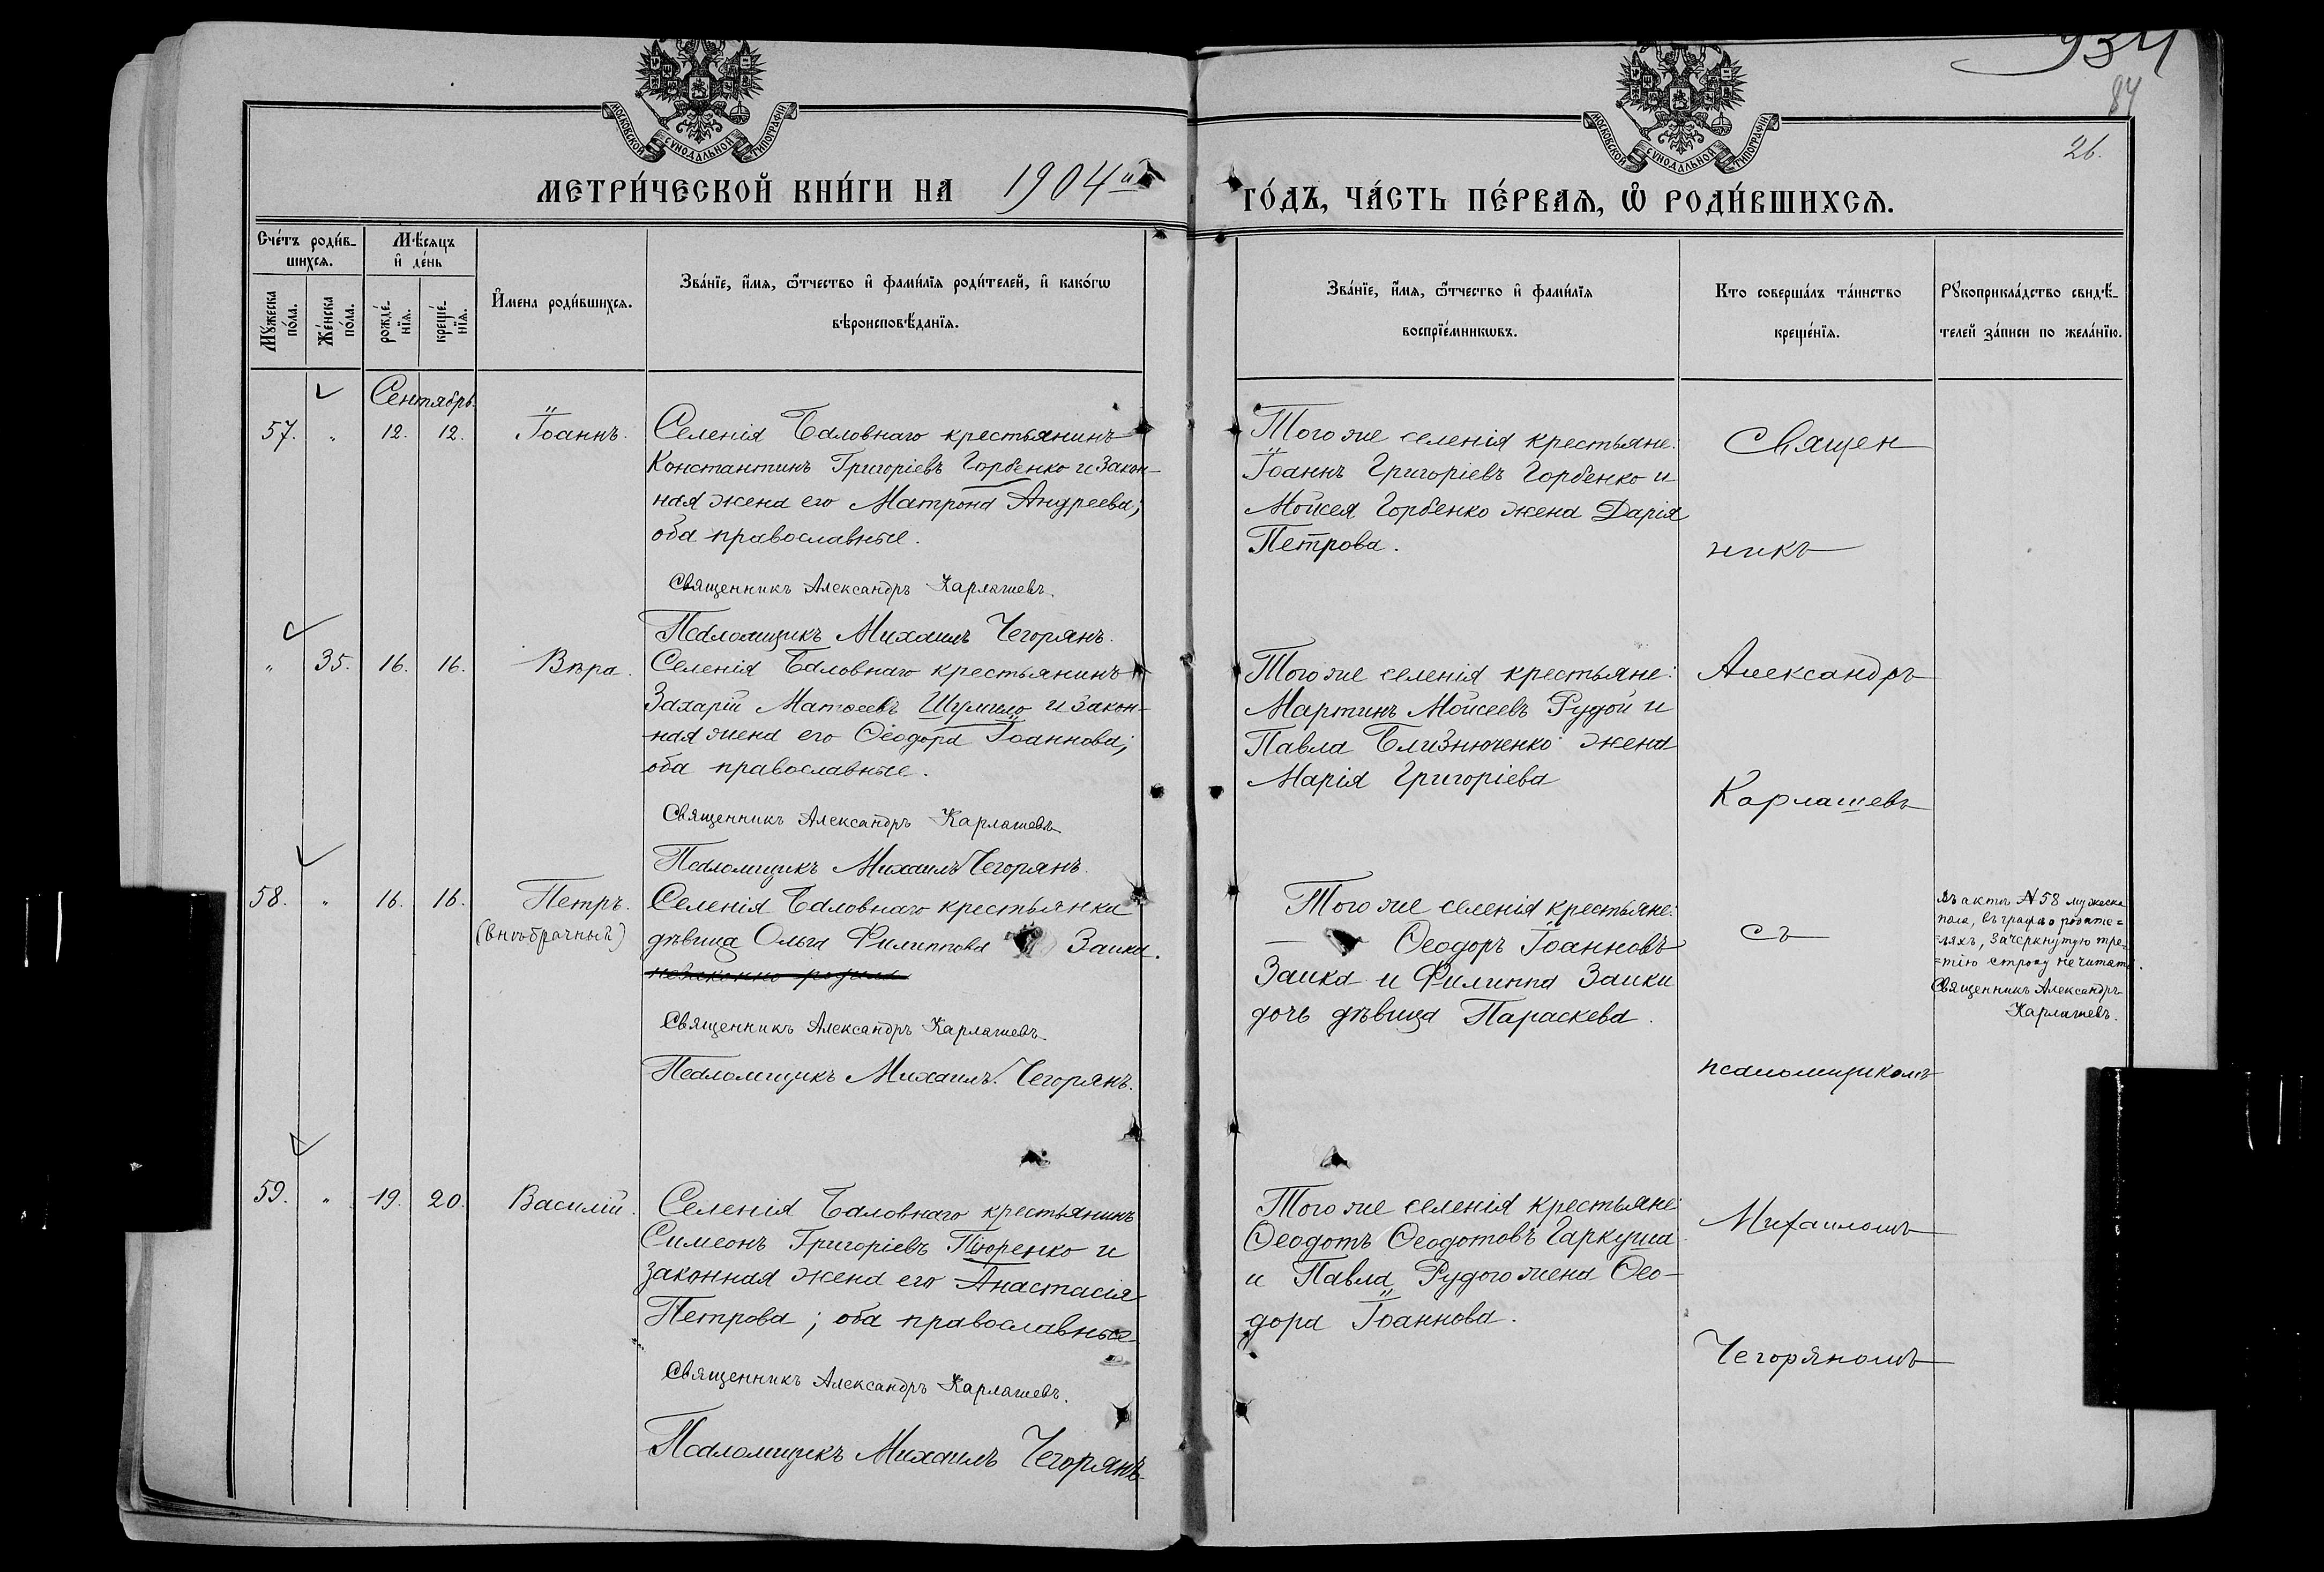 934
84
26.
МОСКОВСКОЙ СУНОДАЛЬНОЙ ТИПОГРАФІИ
МОСКОВСКОЙ СУНОДАЛЬНОЙ ТИПОГРАФІИ
МЕТРИ́ЧЕСКОЙ КНИ́ГИ НА 1904й
ГО́ДЪ, ЧА́СТЬ ПЕ́РВАѦ, Ѿ РОДИ́ВШИХСѦ.
Сче́тъ роди́в-
шихсѧ.
Мѣ́сѧцъ
и҆ де́нь
Мꙋ́жеска
по́ла.
Же́нска
по́ла.
рожде́-
нїѧ.
креще́-
нїѧ.
И҆мена роди́вшихсѧ.
Зва́нїе, и҆́мѧ, ѻ҆́тчество и҆ фами́лїѧ роди́телей, и҆ како́гѡ
вѣроисповѣ́данїѧ.
Зва́нїе, и҆́мѧ, ѻ҆́тчество и҆ фами́лїѧ
воспрїе́мникѡвъ.
Кто соверша́лъ та́инство
креще́нїѧ.
Рꙋкоприкла́дство свидѣ́-
телей за́писи по жела́нїю.
Сентябрь.
57. „ 12. 12. Іоаннъ.
Селенія Баловнаго крестьянинъ
Константинъ Григоріевъ Горбенко и закон-
ная жена его Матрона Андреева;
оба православные.
Священникъ Александръ Карлашевъ.
Псаломщикъ Михаилъ Чегорянъ.
Того же селенія крестьяне:
Іоаннъ Григоріевъ Горбенко и
Мойсея Горбенко жена Дарія
Петрова.
Священ
никъ
„ 35. 16. 16. Вѣра.
Селенія Баловнаго крестьянинъ
Захарій Матѳеевъ Шумило и закон-
ная жена его Ѳеодора Іоаннова;
оба православные.
Священникъ Александръ Карлашевъ
Псаломщикъ Михаилъ Чегорянъ.
Того же селенія крестьяне:
Мартинъ Мойсеевъ Рудой и
Павла Близнюченко жена
Марія Григоріева
Александръ
Карлашевъ
58. „ 16. 16. Петръ.
(внѣбрачный)
Селенія Баловнаго крестьянка
дѣвица Ольга Филиппова Заика.
незаконно родила
Священникъ Александръ Карлашевъ.
Псаломщикъ Михаилъ Чегорянъ.
Того же селенія крестьяне:
Ѳеодоръ Іоанновъ
Заика и Филиппа Заики
дочь дѣвица Параскева.
съ
псаломщикомъ
Въ актѣ № 58 мужеска
пола, въ графѣ о родите=
=ляхъ, зачеркнутую тре=
=тію строку не читать.
Священникъ Александръ
Карлашевъ.
59. „ 19. 20. Василій.
Селенія Баловнаго крестьянинъ
Симеонъ Григоріевъ Пюренко и
законная жена его Анастасія
Петрова; оба православные
Священникъ Александръ Карлашевъ.
Псаломщикъ Михаилъ Чегорянъ.
Того же селенія крестьяне:
Ѳеодотъ Ѳеодотовъ Гаркуша
и Павла Рудого жена Ѳео-
дора Іоаннова.
Михаиломъ
Чегоряномъ